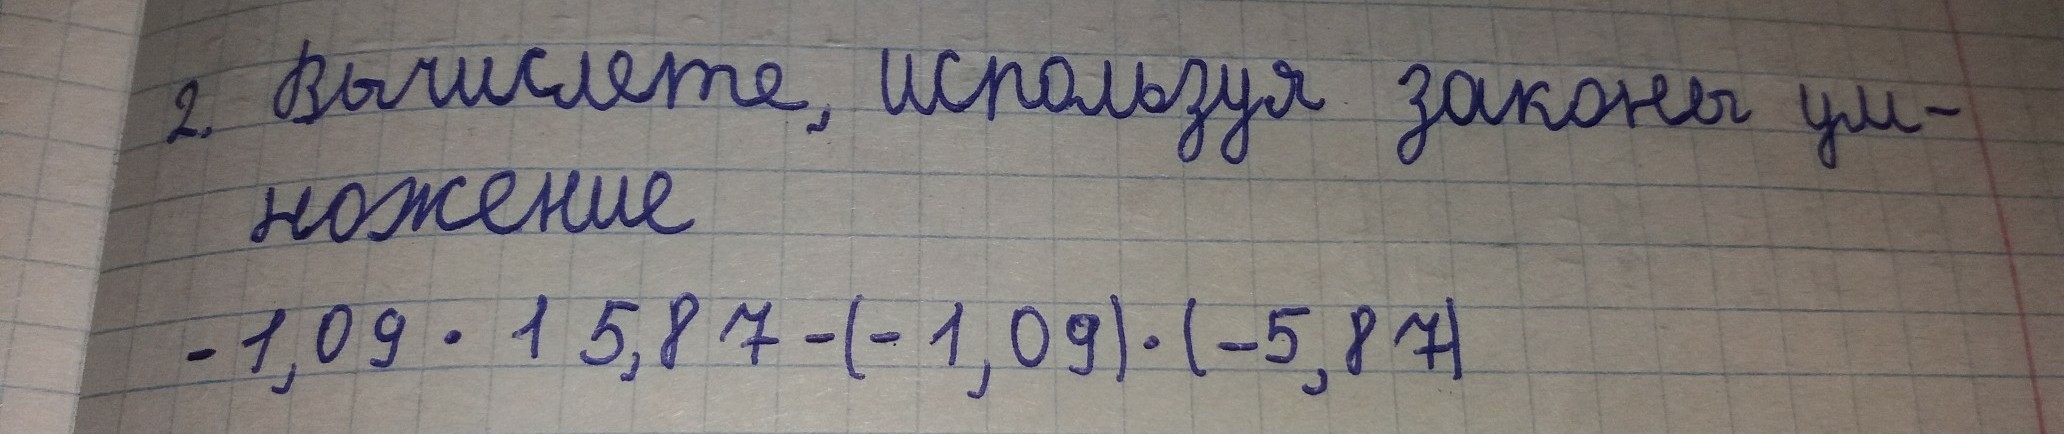 2. Вычислете, используя законы ум-
ножение
-1,09 · 15,87 -(-1,09)·(-5,87)